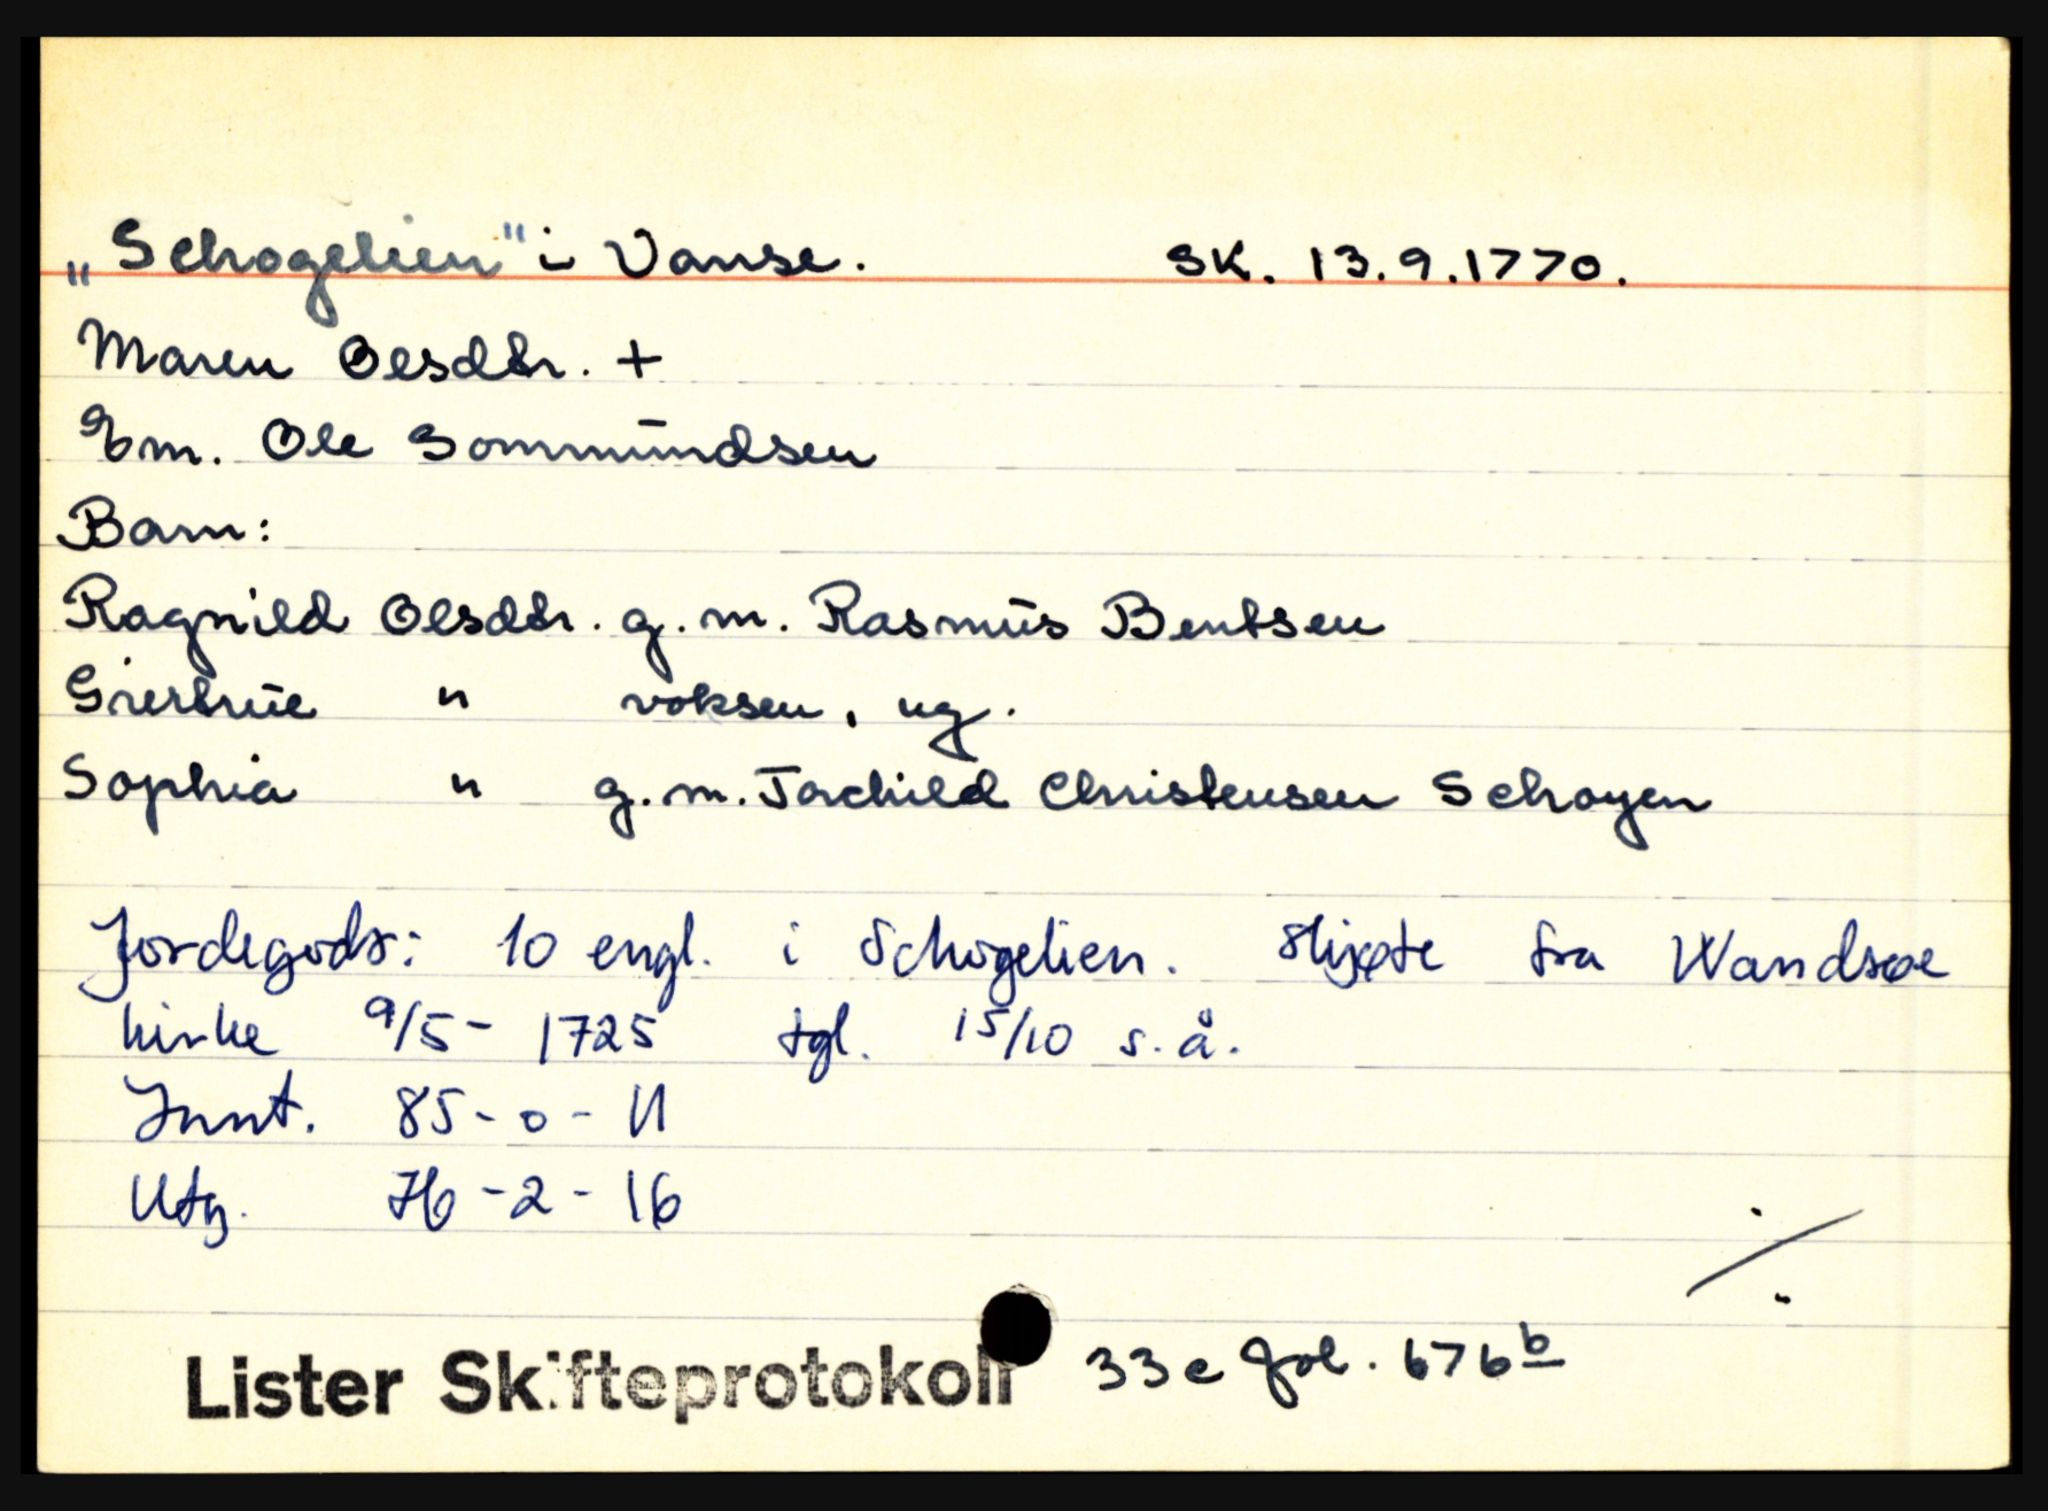 „Schogelien" i Vanse. SK. 13.9.1770.
Maren Olsdtr. +
Em. Ole Sommundsen
Barn:
Ragnild Olsdtr. g.m. Rasmus Bentsen
Giertrue " voksen, ug.
Sophia " g.m. Torchild Christensen Schogen
Jordegods: 10 engl. i Schogelien. Skjøte fra Wandsøe
kirke 9/5 - 1725 tgl. 15/10 s.å.
Innt. 85 - 0 - 11
Utg. 76 - 2 - 16
Lister Skifteprotokoll 33c fol. 676b